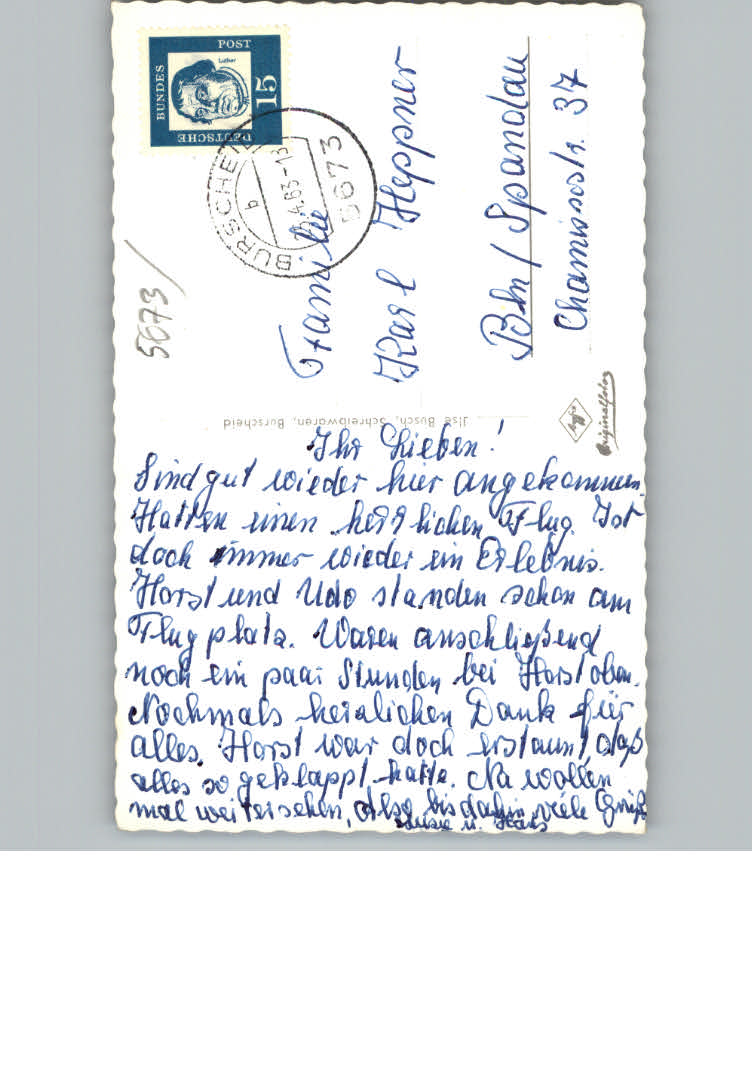 BUNDES
POST
DEUTSCHE
Luther
15
BURSCHEID
b
4.63-18
5673
5673
Familie
Karl Heppner
Bln / Spandau
Chamissostr. 37
Ilse Busch, Schreibwaren, Burscheid
Agfa
Originalfoto
Ihr Lieben!
Sind gut wieder hier angekommen.
Hatten einen herrlichen Flug. Ist
doch immer wieder ein Erlebnis.
Horst und Udo standen schon am
Flugplatz. Waren anschließend
noch ein paar Stunden bei Horst oben.
Nochmals herzlichen Dank für
alles. Horst war doch erstaunt daß
alles so geklappt hatte. Na wollen
mal weitersehen, also bis dahin viele Grüße
u. Hans